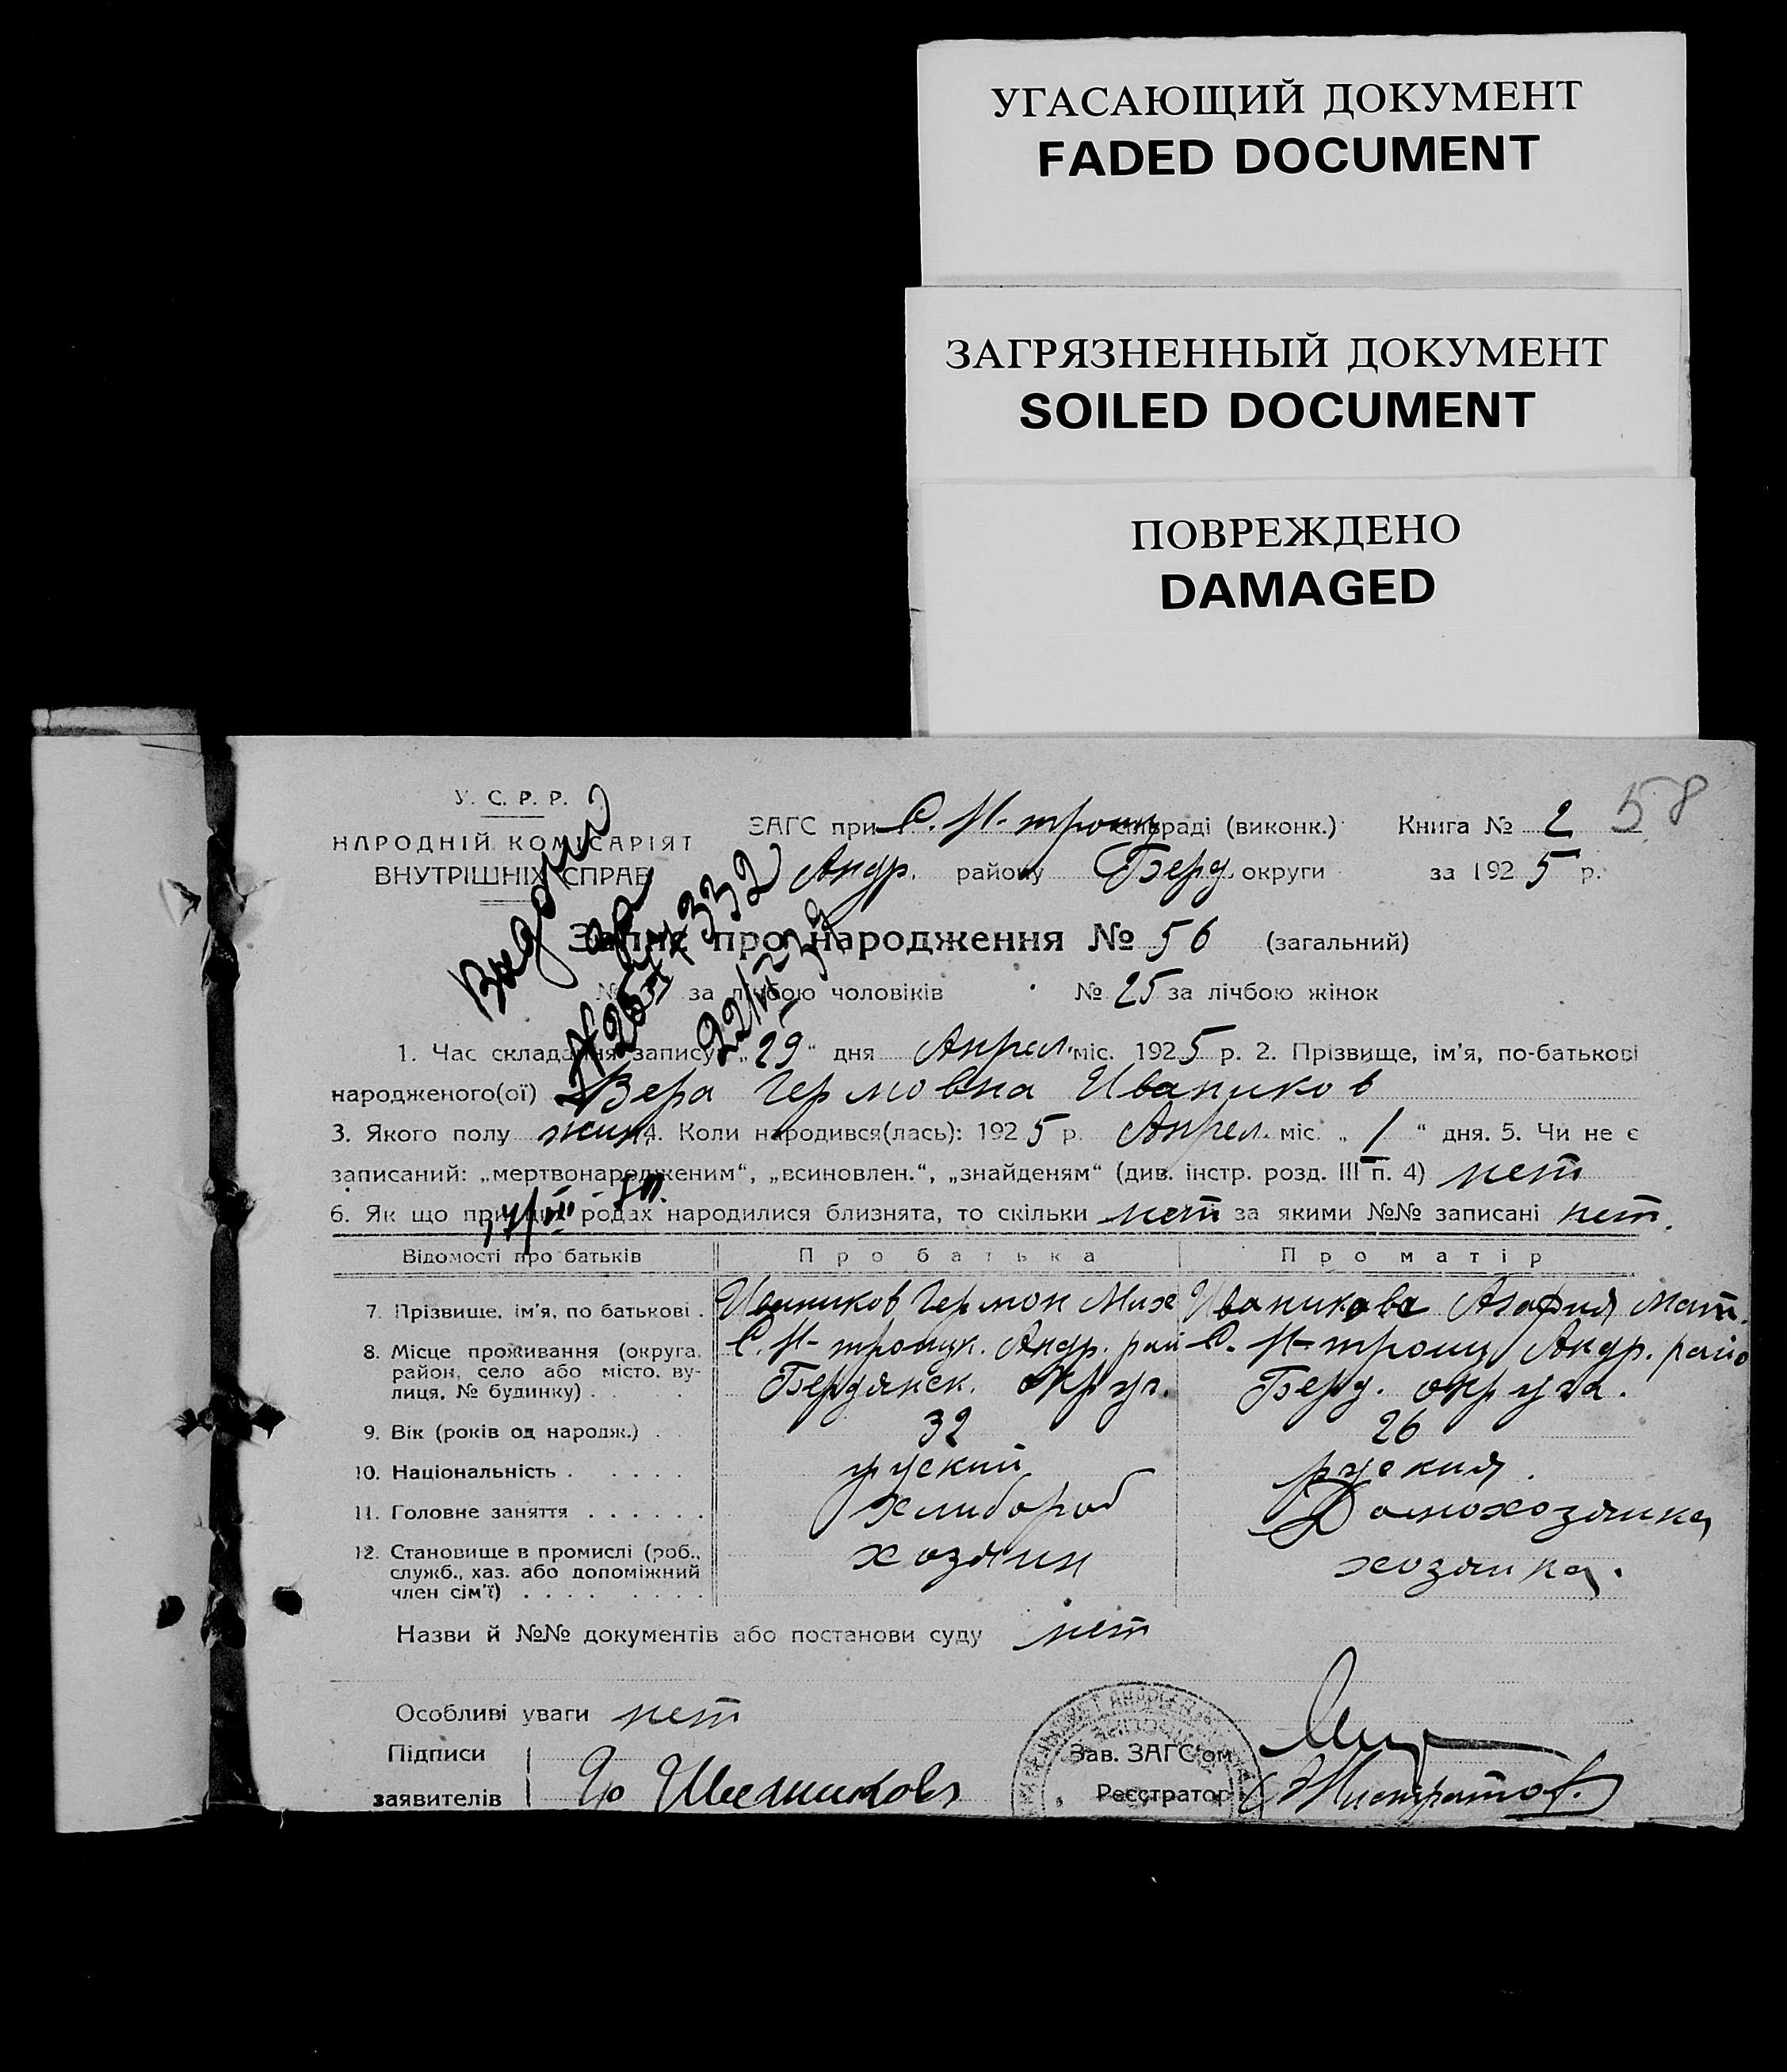 УГАСАЮЩИЙ ДОКУМЕНТ
FADED DOCUMENT
ЗАГРЯЗНЕННЫЙ ДОКУМЕНТ
SOILED DOCUMENT
ПОВРЕЖДЕНО
DAMAGED
58
У. С. Р. Р.
НАРОДНІЙ КОМІСАРІЯТ
ВНУТРІШНІХ СПРАВ
ЗАГС при С. Н-троиц сільраді (виконк.) Книга № 2
Андр. району Берд. округи за 1925 р.
Запис про народження № 56 (загальний)
№ за лічбою чоловіків № 25 за лічбою жінок
1. Час складання запису „29“ дня Апрел. міс. 1925 р. 2. Прізвище, ім'я, по-батькові
народженого(ої) Вера Гермовна Иваников
3. Якого полу жин. 4. Коли народився(лась): 1925 р. Апрел. міс. „1“ дня. 5. Чи не є
записаний: „мертвонародженим“, „всиновлен.“, „знайденям“ (див. інстр. розд. III п. 4) нет
6. Як що при цих родах народилися близнята, то скільки нет за якими №№ записані нет.
Відомості про батьків Про батька Про матір
7. Прізвище, ім'я, по батькові . Иваников Гермон Мих Иваникова Агафия Мат.
8. Місце проживання (округа, район, село або місто, ву-
лиця, № будинку) . . . С. Н-троицк. Андр. рай Бердянск. округ. С. Н-троиц Андр. райо Берд. округа.
9. Вік (років од народж.) . 32 26
10. Національність . . . . . . руский руския.
11. Головне заняття . . . . . . хлибороб Домохозяика
12. Становище в промислі (роб., хозяин хозяика.
служб., хаз. або допоміжний
член сім'ї) . . . . . . . .
Назви й №№ документів або постанови суду нет
Особливі уваги нет
Підписи
заявителів
Зав. ЗАГС'ом
Реєстратор